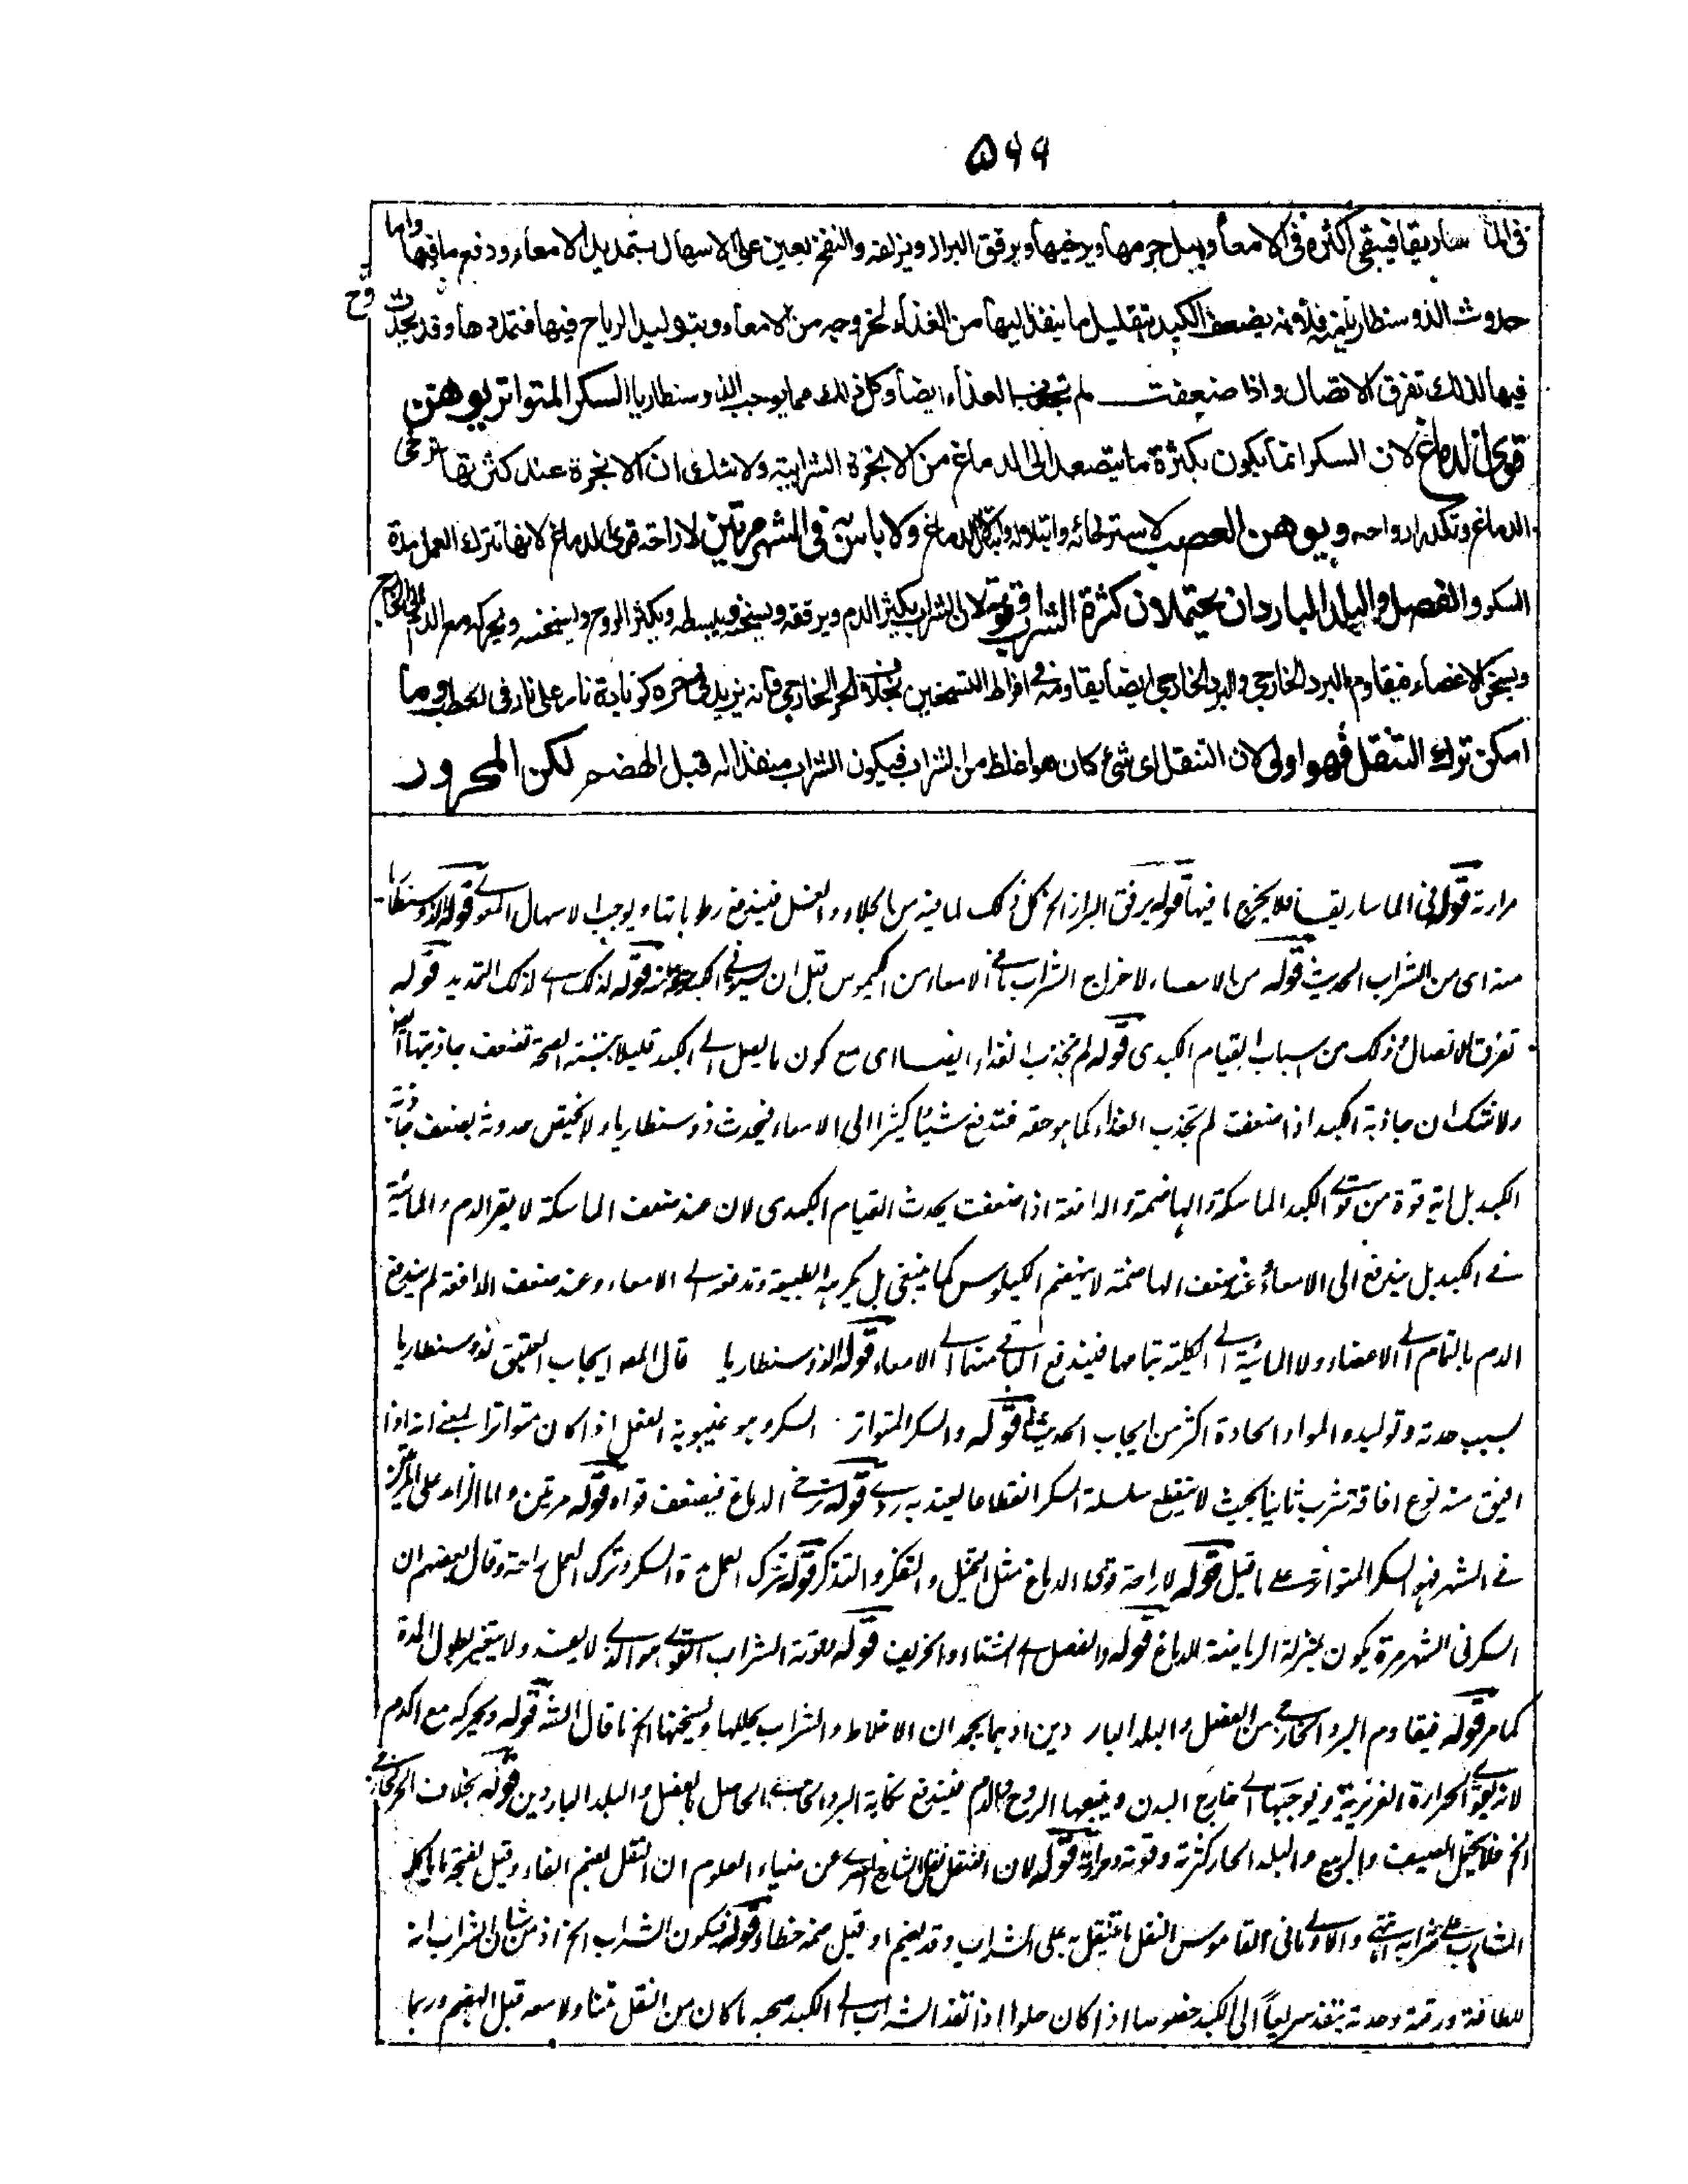 ۵۶۹
في الما ساريقا فيبقى اكثره في الامعاء ويبل جرمها ويرخيها ويرقق البراز ويزلقه والنفخ يعين على الاسهال بتمديد الامعاء ودفع ما فيها واما
حدوث الذوسنطاريا منه فلأنه يضعف الكبد بتقليل ما ينفذ اليها من الغذاء لخروجه من الامعاء وبتوليد الرياح فيها فتمددها وقد يحدث
فيها لذلك تفرق الاتصال واذا ضعفت لم تجذب الغذاء ايضا وكل ذلك مما يوجب الذوسنطاريا السكر المتواتر يوهن
قوى الدماغ لان السكر انما يكون بكثرة ما يتصعد الى الدماغ من الابخرة الشرابية ولا شك ان الابخرة عند كثرتها ترخى
الدماغ وتكدر ارواحه ويوهن العصب لاسترخائه وابتلاله الدماغ ولا باس به في الشهر مرتين لاراحة قوى الدماغ لانها تترك العمل مدة
السكر والفصل والبلد الباردان يحتملان كثرة الشراب وقوته لان الشراب يكثر الدم ويرققه ويسخنه فيبسطه ويكثر الروح ويسخنه ويحركه مع الدم الى الخارج
ويسخن الاعضاء فيقاوم البرد الخارجي والبرد الخارجي ايضا يقاومه في افراط التسخين بخلاف الحر الخارجي فانه يزيد في حره كزيادة نار على نار في الحطب وما
امكن ترك التنقل فهو اولى لان التنقل اى شئ كان هو اغلظ من الشراب فيكون الشراب منفذا له قبل الهضم لكن المحرور
مرارته قوله في الماساريقا فلا يخرج ما فيها قوله يرقق البراز الخ كل ذلك لما فيه من الجلاء والغسل فيندفع رطوباتها ويوجب الاسهال المعوى قوله الذوسنطاريا
منه اى من الشراب الحديث قوله من الامعاء لاخراج الشراب ما في الامعاء من الكيموس قبل ان الكبد منه قوله لذلك اى لذلك التمديد قوله
تفرق الاتصال وذلك من اسباب القيام الكبدى قوله لم تجذب الغذاء ايضا اى مع كون ما يصل الى الكبد قليلا بنسبة الصحة تضعف جاذبتها
ولا شك ان جاذبة الكبد اذا ضعفت لم تجذب الغذاء كما هو حقه فتدفع شيئا كثيرا الى الامعاء فيحدث ذوسنطاريا ولا يختص حدوثه بضعف جاذبة
الكبد بل اية قوة من قوى الكبد الماسكة والهاضمة والدافعة اذا ضعفت يحدث القيام الكبدى لان عند ضعف الماسكة لا يقر الدم والمائية
في الكبد بل يندفع الى الامعاء وعند ضعف الهاضمة لا ينهضم الكيلوس كما ينبغى بل يكرهه الطبيعة وتدفعه الى الامعاء وعند ضعف الدافعة لم يندفع
الدم بالتمام الى الاعضاء ولا المائية الى الكلية بتمامها فيندفع الباقي منهما الى الامعاء قوله الذوسنطاريا قال المص ايجاب العتيق لذوسنطاريا
بسبب حدته وتوليده المواد الحادة اكثر من ايجاب الحديث قوله والسكر المتواتر السكر وهو غيبوبة العقل اذا كان متواترا يعنى انه اذا
افيق منه نوع افاقة شرب ثانيا بحيث لا ينقطع سلسلة السكر انقطاعا يعتد به ردى قوله ترخى الدماغ فيضعف قواه قوله مرتين واما الزائد على المرتين
في الشهر فهو السكر المتواتر على ما قيل قوله لاراحة قوى الدماغ مثل التخيل والتفكر والتذكر قوله تترك العمل مدة السكر وترك العمل راحة وقال بعضهم ان
السكر في الشهر مرة يكون بمنزلة الرياضة للدماغ قوله والفصل اى الشتاء والخريف قوله وقوته الشراب القوى هو الذى لا يفسد ولا يتغير بطول المدة
كما مر قوله فيقاوم البرد الخارجى من الفصل والبلد الباردين اذ هما يجمدان الاخلاط والشراب يحللها ويسخنها الخ ما قال الشه قوله ويحركه مع الدم
لانه يقوى الحرارة الغريزية ويوجهها الى خارج البدن ويتبعها الروح والدم فيندفع نكاية البرد الخارجى الحاصل بالفصل والبلد الباردين قوله بخلاف الحر الخارجى
الخ فلا يحتمل الصيف والربيع والبلد الحار كثرته وقوته قوله لان التنقل نقل الشارح عن ضياء العلوم ان النقل بضم الفاء وقيل بفتحة ما ياكله
الشارب على شرابه انتهى والاولى ما في القاموس النقل ما يتنقل به على الشراب وقد يضم او قيل ضمه خطاء قوله فيكون الشراب الخ اذ من شان الشراب انه
للطافته ورقته وحدته ينفذ سريعاً الى الكبد خصوصا اذا كان حلوا اذا نفذ الشراب الى الكبد صحبه ما كان من النقل متناولا معه قبل الهضم وربما